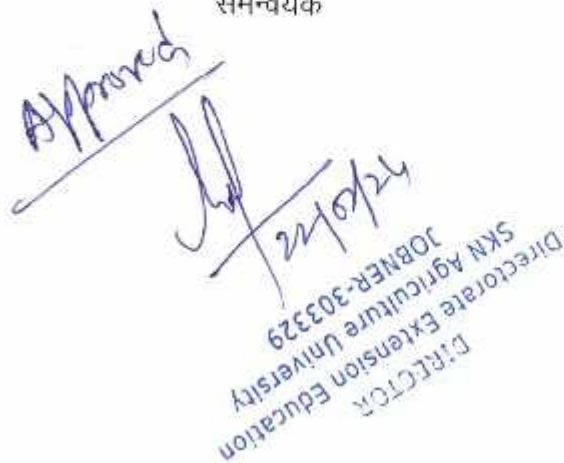 समन्वयक
Approved
22/08/24
DIRECTOR
Directorate Extension Education
SKN Agriculture University
JOBNER-303329